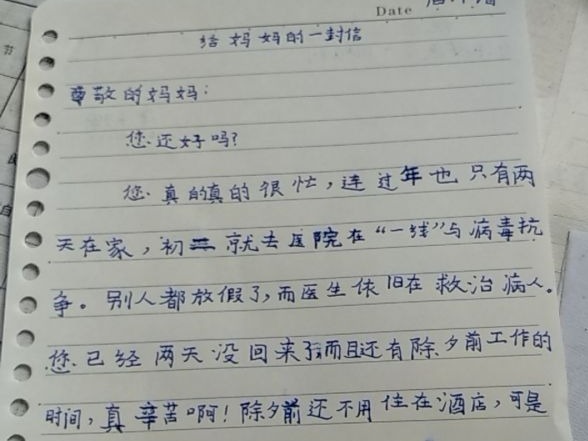 Date
给妈妈的一封信
尊敬的妈妈：
您还好吗？
您真的真的很忙，连过年也只有两
天在家，初二就去医院在“一线”与病毒抗
争。别人都放假了，而医生依旧在救治病人。
您已经两天没回来了而且还有除夕前工作的
时间，真辛苦啊！除夕前还不用住在酒店，可是